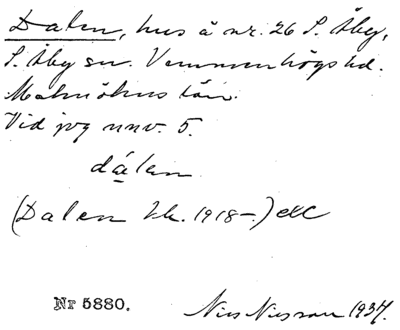 Dalen, hus å nr. 26 S. Åby,
S. Åby sn. Vemmenhögs hd.
Malmöhus län.
Vid jvg unnv. 5.
dálan
(Dalen Lk. 1918-)
Nr 5880. Nils Nilsson 1937.